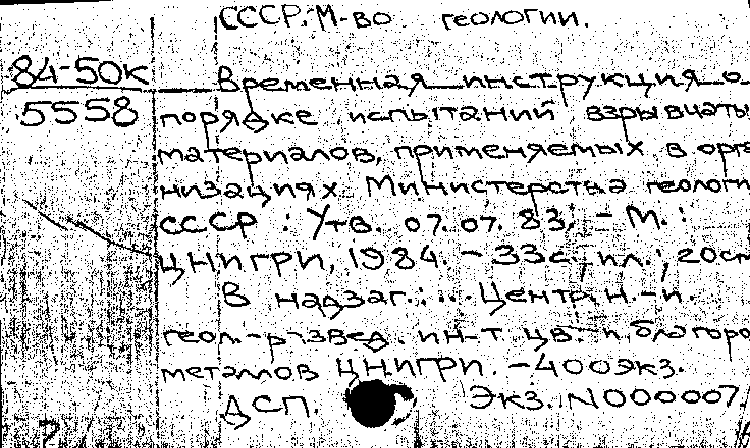 СССР. М-во геологии.
84-50к
5558
Временная инструкция о
порядке испытаний взрывчаты
материалов, применяемых в орга
низациях Министерства геологи
СССР : Утв. 07.07.83. - М. :
ЦНИГРИ, 1984. - 33с., ил.; 20см
В надзаг.: ... Центр. н.-и.
геол.-развед. ин-т цв. и благоро
металлов ЦНИГРИ. - 400экз.
ДСП. Экз. N000007.